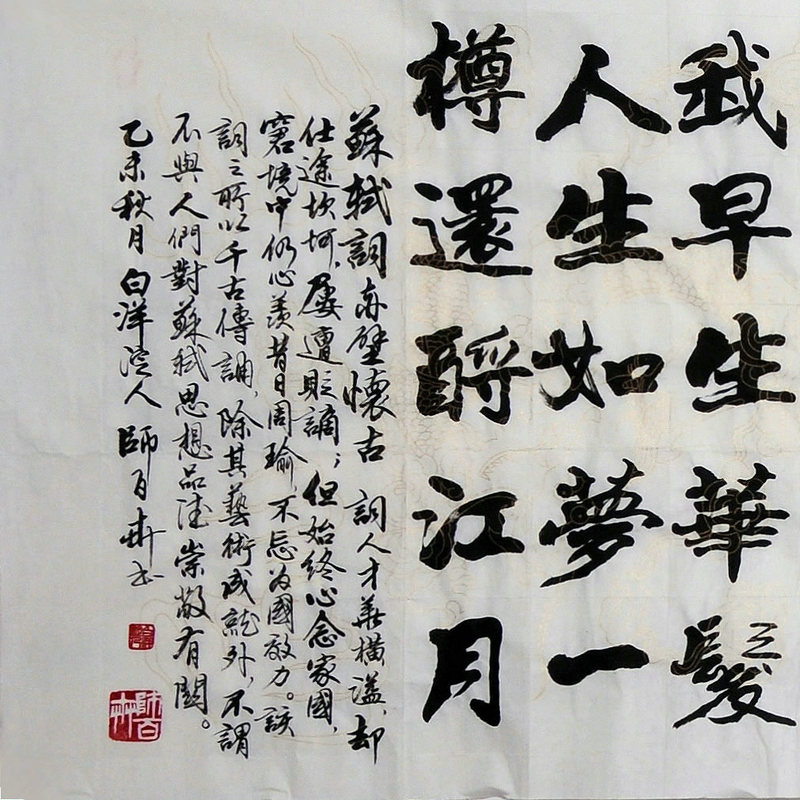 我早生華髮
人生如夢一
樽還酹江月
蘇軾詞赤壁懷古 詞人才華橫溢,却
仕途坎坷,屡遭貶謫;但始終心念家國,
窘境中仍心羨昔日周瑜,不忘為國效力。該
詞之所以千古傳誦,除其藝術成就外,不謂
不與人們對蘇軾思想品德崇敬有關。
乙未秋月白洋淀人師百卉书